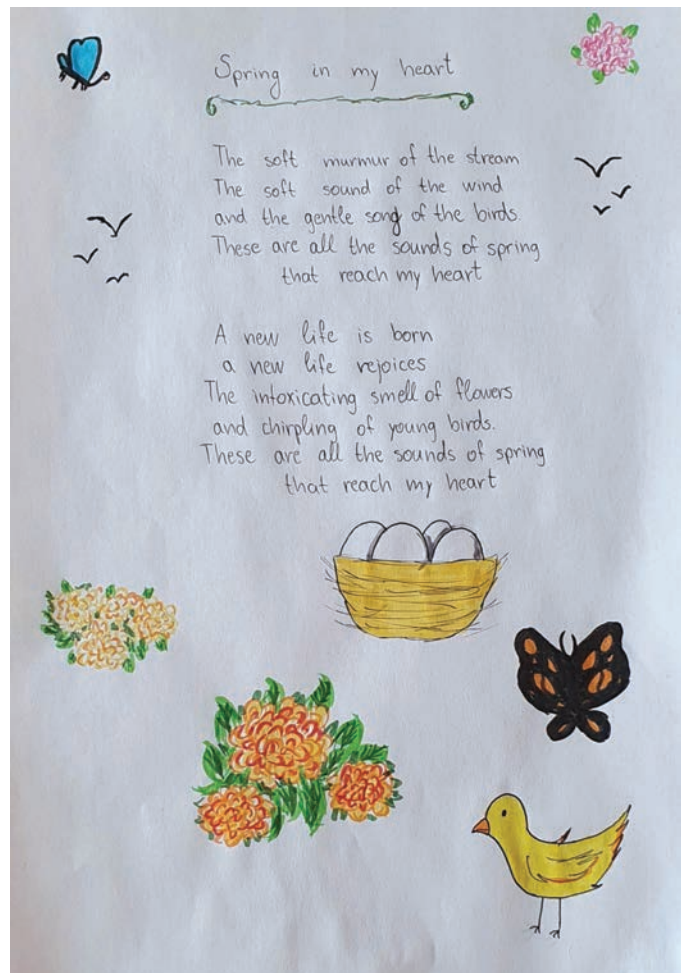 Spring in my heart
The soft murmur of the stream
The soft sound of the wind
and the gentle song of the birds.
These are all the sounds of spring
that reach my heart
A new life is born
a new life rejoices
The intoxicating smell of flowers
and chirpling of young birds.
These are all the sounds of spring
that reach my heart